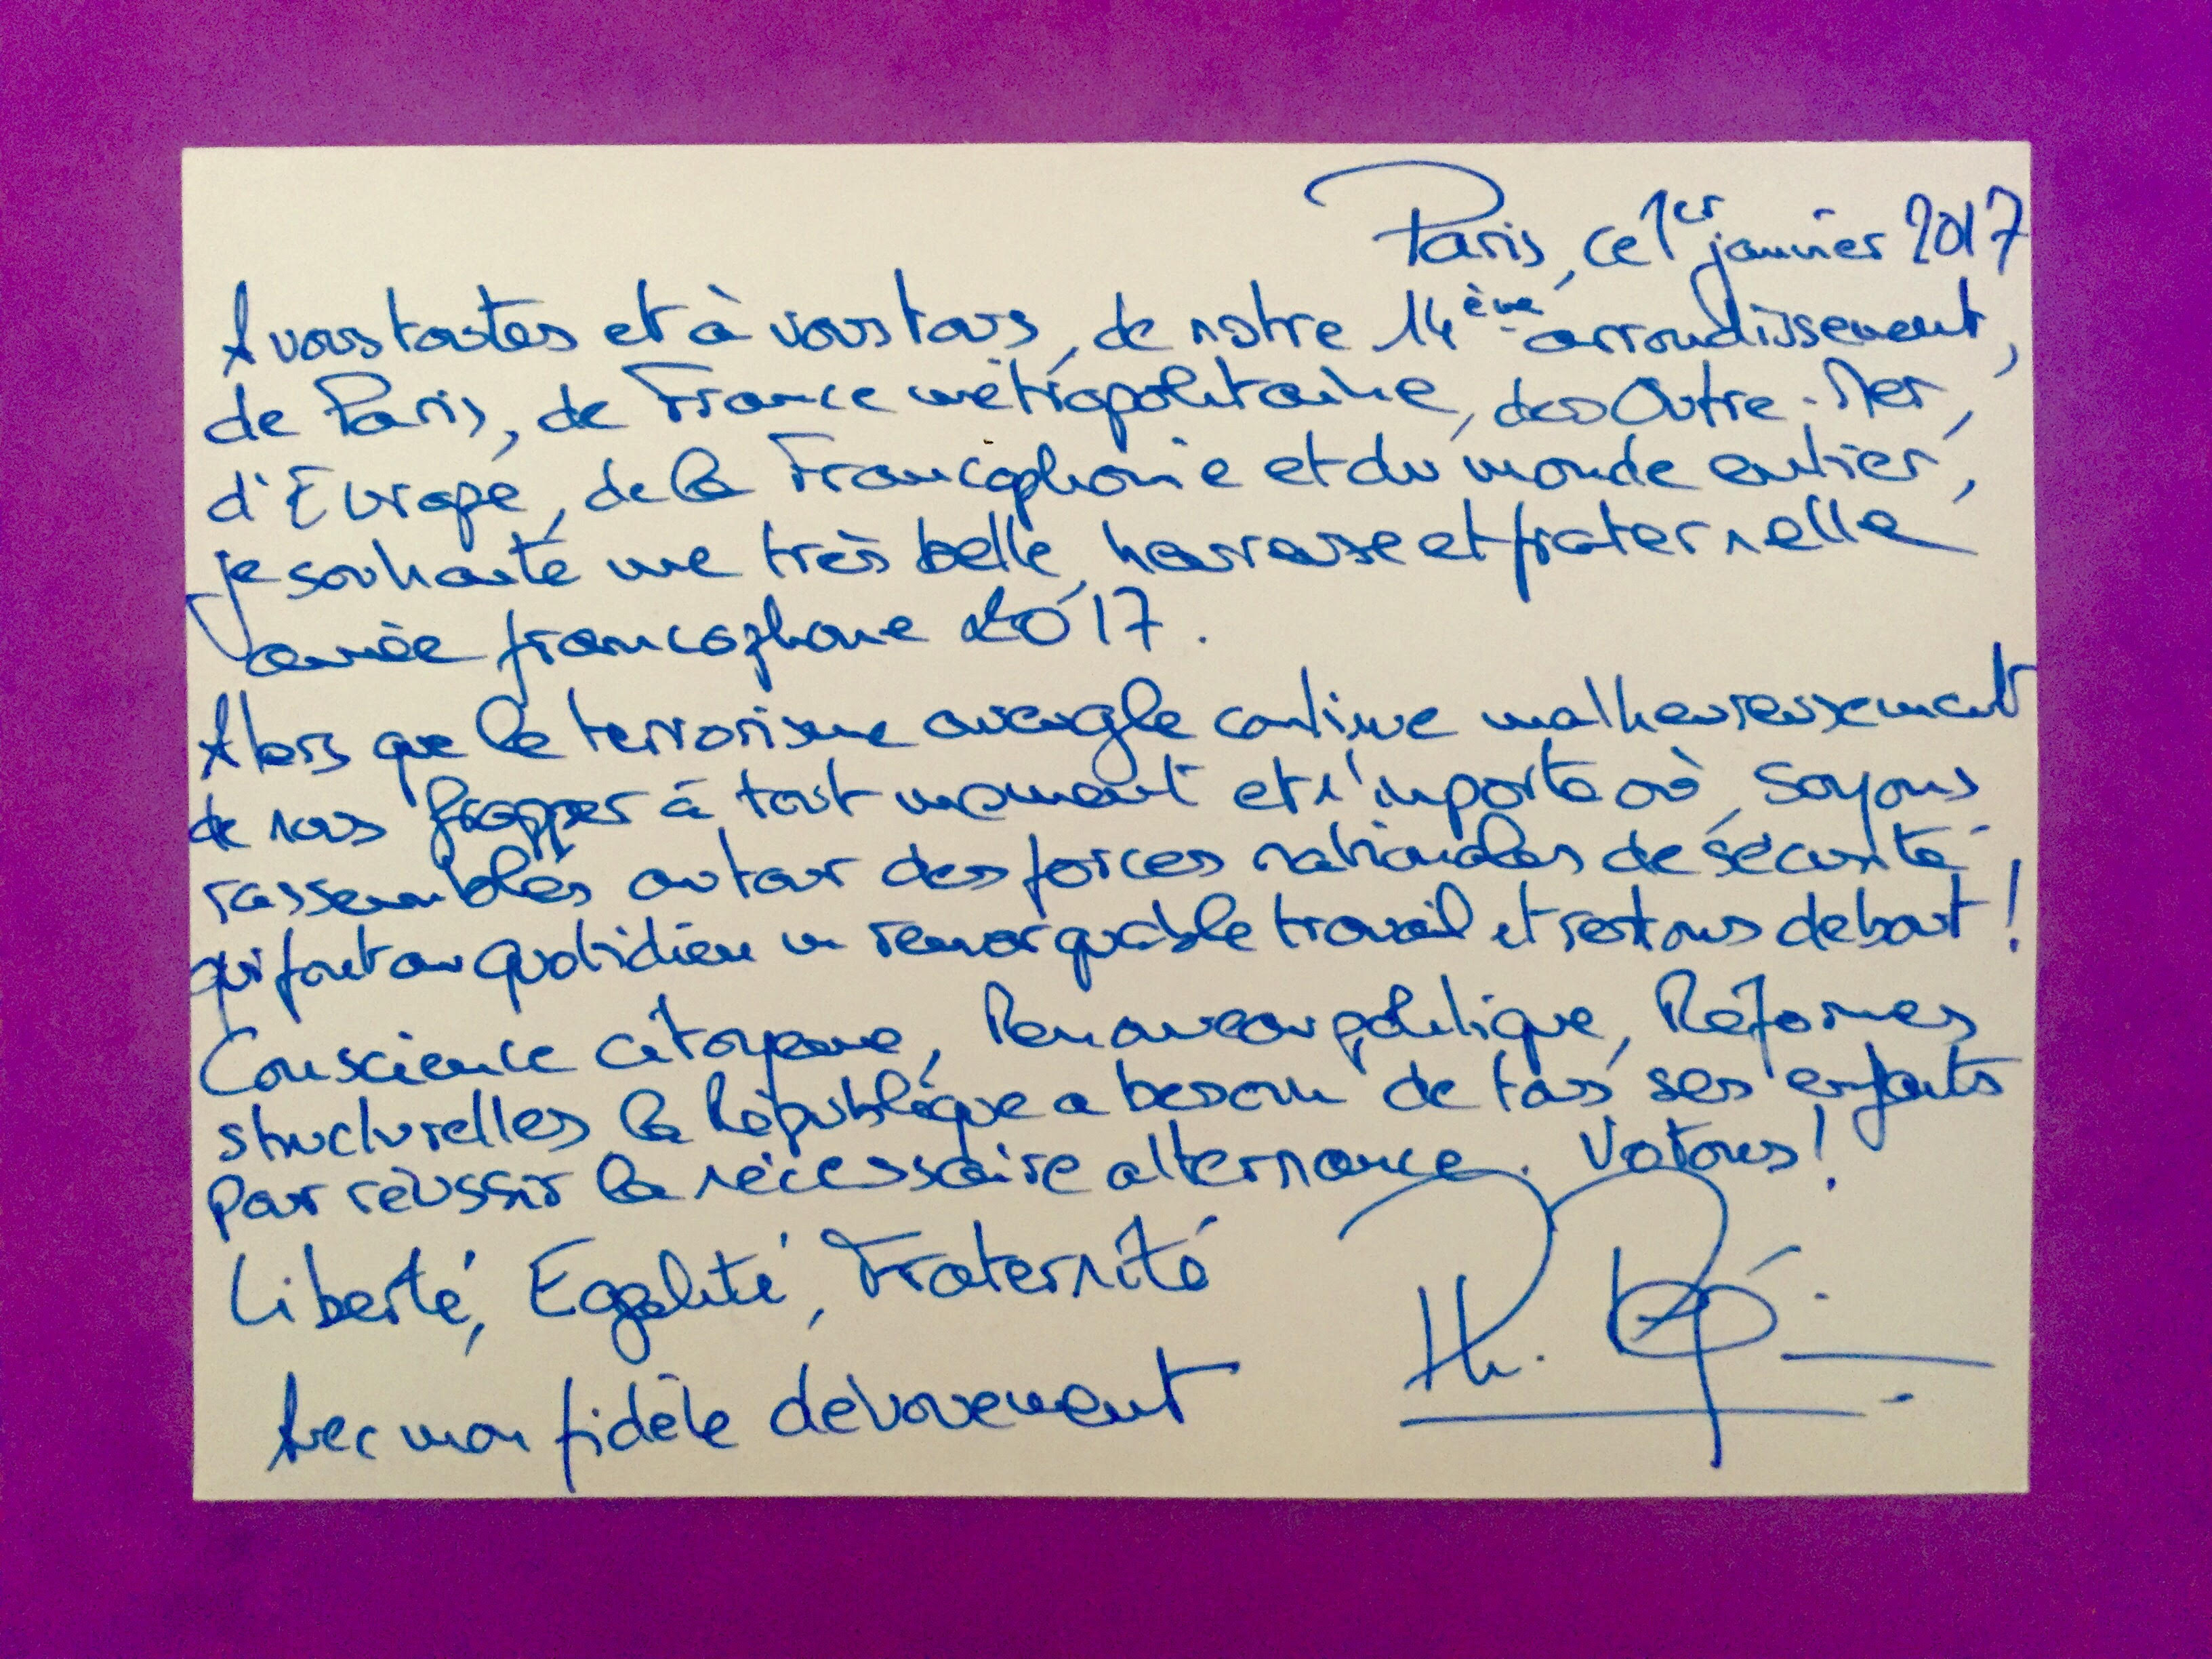 Paris, ce 1er janvier 2017
A vous toutes et à vous tous, de notre 14ème arrondissement,
de Paris, de France métropolitaine, des Outre-Mer,
d'Europe, de la Francophonie et du monde entier,
je souhaite une très belle, heureuse et fraternelle
année francophone 2017.
Alors que le terrorisme aveugle continue malheureusement
de nous frapper à tout moment et n'importe où, soyons
rassemblés autour des forces nationales de sécurité
qui font au quotidien un remarquable travail et restons debout !
Conscience citoyenne, Renouveau politique, Réformes
structurelles la République a besoin de tous ses enfants
pour réussir la nécessaire alternance. Votons !
Liberté, Egalité, Fraternité
Avec mon fidèle dévouement